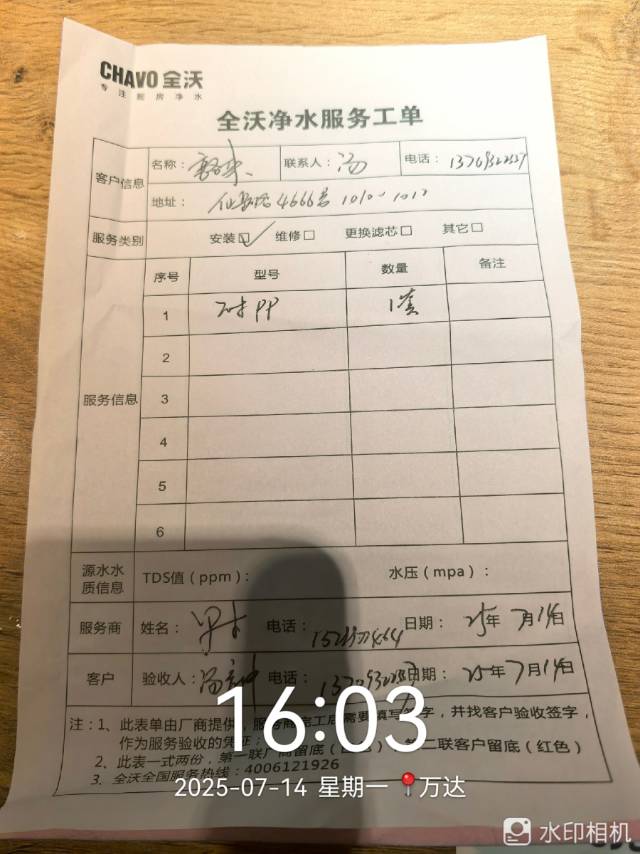 CHAVO 全沃
专注厨房净水
全沃净水服务工单
客户信息 名称： 联系人：汤 电话：
地址： 4666号 1010-1012
服务类别 安装☑ 维修□ 更换滤芯□ 其它□
服务信息 序号 型号 数量 备注
1 PP 1套
2
3
4
5
6
源水水质信息 TDS值（ppm）： 水压（mpa）：
服务商 姓名： 电话： 日期：25年7月14日
客户 验收人：汤 电话： 日期：25年7月14日
注：1、此表单由厂商提供，服务商完工后需要填写签字，并找客户验收签字，
作为服务验收的凭证；
2、此表一式两份，第一联厂商留底 第二联客户留底（红色）
3、全沃全国服务热线：4006121926
16:03
2025-07-14 星期一 万达
水印相机